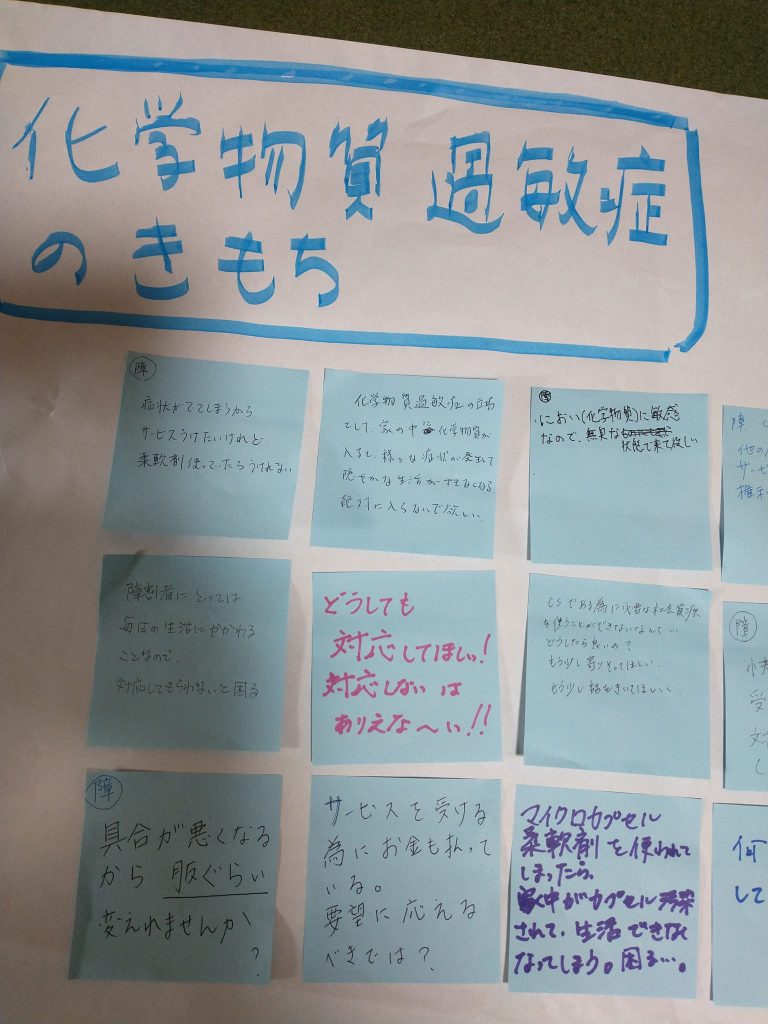 化学物質過敏症
のきもち
障
症状がでてしまうから
サービスうけたいけれど
柔軟剤使っていたらうけれない
化学物質過敏症の立場
として、家の中に化学物質が
入ると、様々な症状が発生して
隠やかな生活ができなくなる
絶対に入らないで欲しい。
障
におい(化学物質)に敏感
なので、無臭な
状態で来て欲しい
障
他の
サービ
権利
障割者にとっては
毎日の生活にかかわる
ことなので、
対応してもらわないと困る
どうしても
対応してほしい!
対応しないは
ありえな〜い!!
CSである為に代替な社会資源
を使うことができないなんて…
どうしたら良いの?
もう少し寄りそってほしい。
もう少し話をきいてほしい。
障
受
対
障
具合が悪くなる
から 服ぐらい
変えれませんか
?
サービスを受ける
為にお金も払って
いる。
要望に応える
べきでは?
マイクロカプセル
柔軟剤を使われて
しまったら、
家中がカプセル汚染
されて、生活できなく
なってしまう。困る…。
何
して